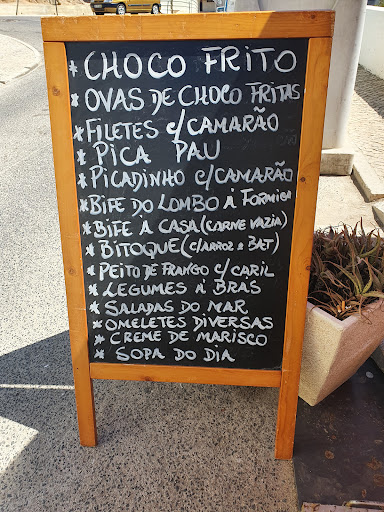 * CHOCO FRITO
* OVAS DE CHOCO FRITAS
* FILETES C/CAMARÃO
* PICA PAU
* PICADINHO C/CAMARÃO
* BIFE DO LOMBO À FORMIGA
* BIFE À CASA (CARNE VAZIA)
* BITOQUE (C/ARROZ E BAT)
* PEITO DE FRANGO C/ CARIL
* LEGUMES À BRAS
* SALADAS DO MAR
* OMELETES DIVERSAS
* CREME DE MARISCO
* SOPA DO DIA